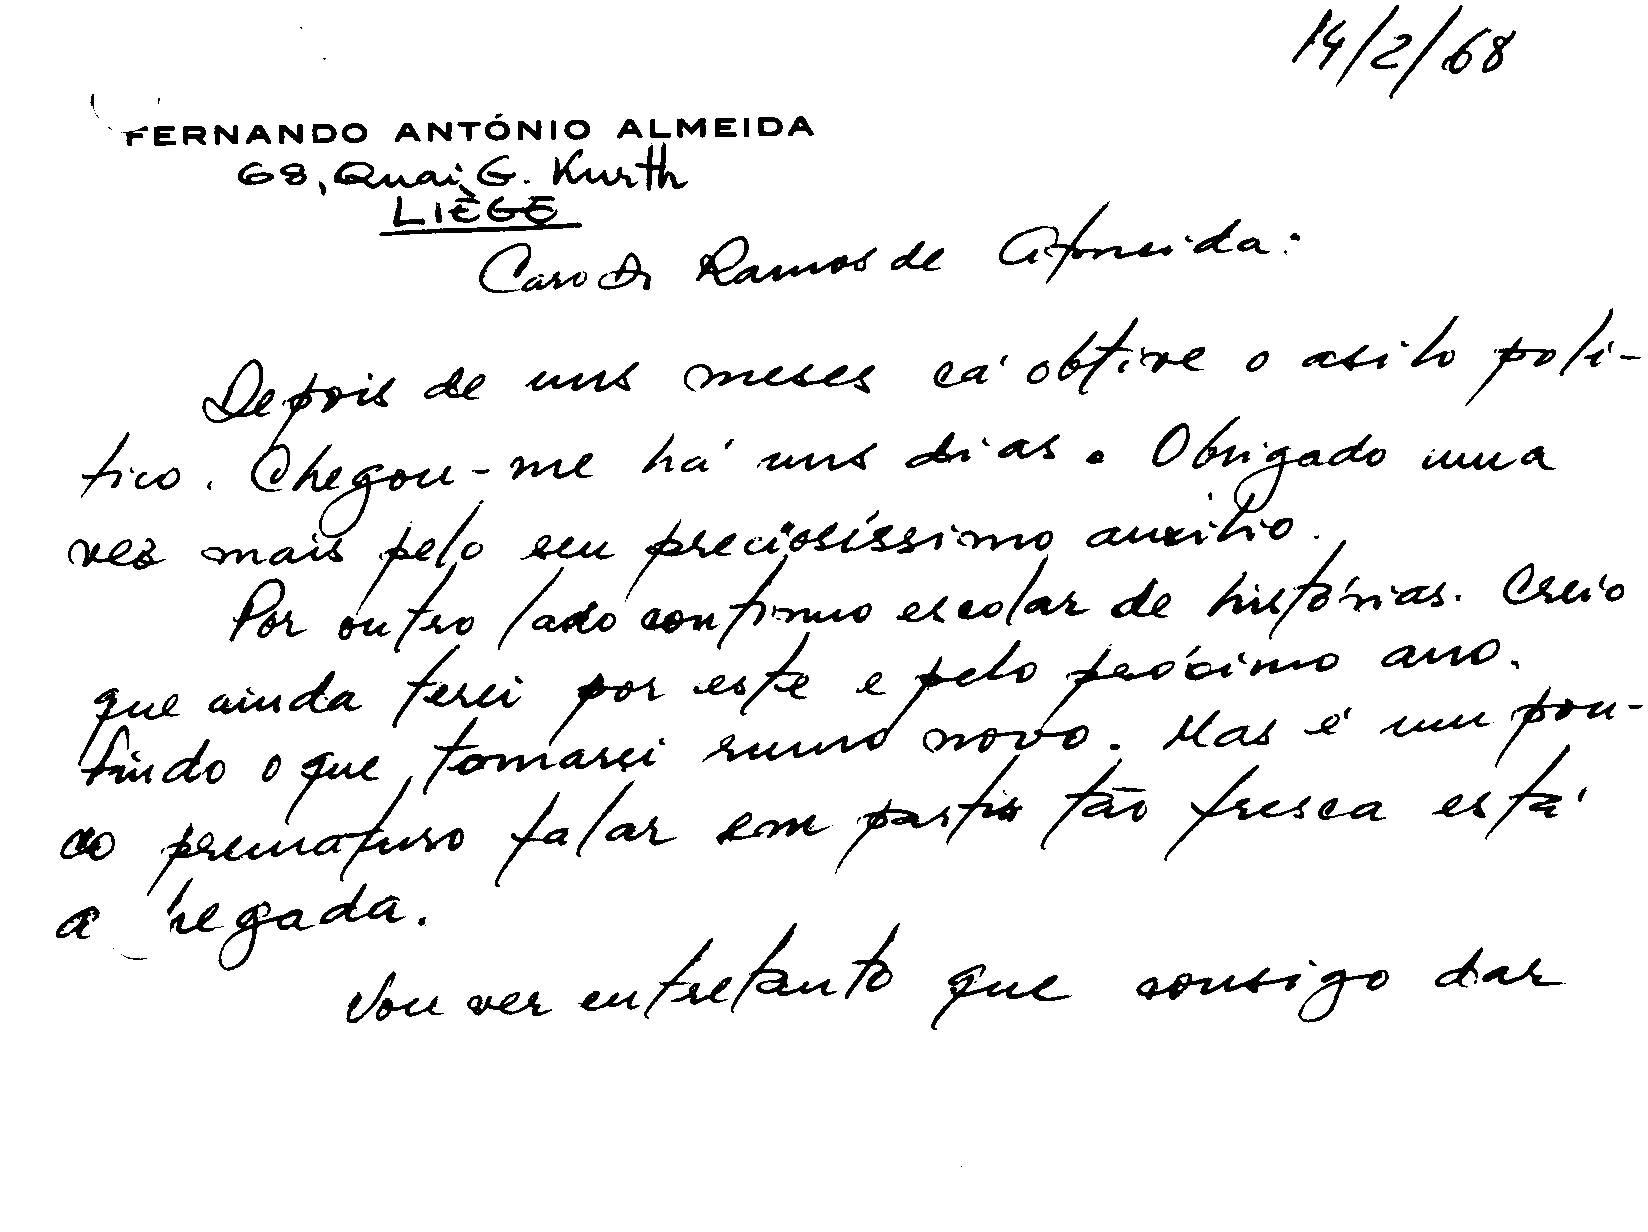 14/2/68
FERNANDO ANTÓNIO ALMEIDA
68, Quai G. Kurth
LIÈGE
Caro Dr Ramos de Almeida:
Depois de uns meses cá obtive o asilo polí-
tico. Chegou-me há uns dias. Obrigado uma
vez mais pelo seu preciosíssimo auxílio.
Por outro lado continuo escolar de histórias. Creio
que ainda terei por este e pelo próximo ano.
Findo o que, tomarei rumo novo. Mas é um pou-
co prematuro falar em partir tão fresca está
a chegada.
Vou ver entretanto que consigo dar